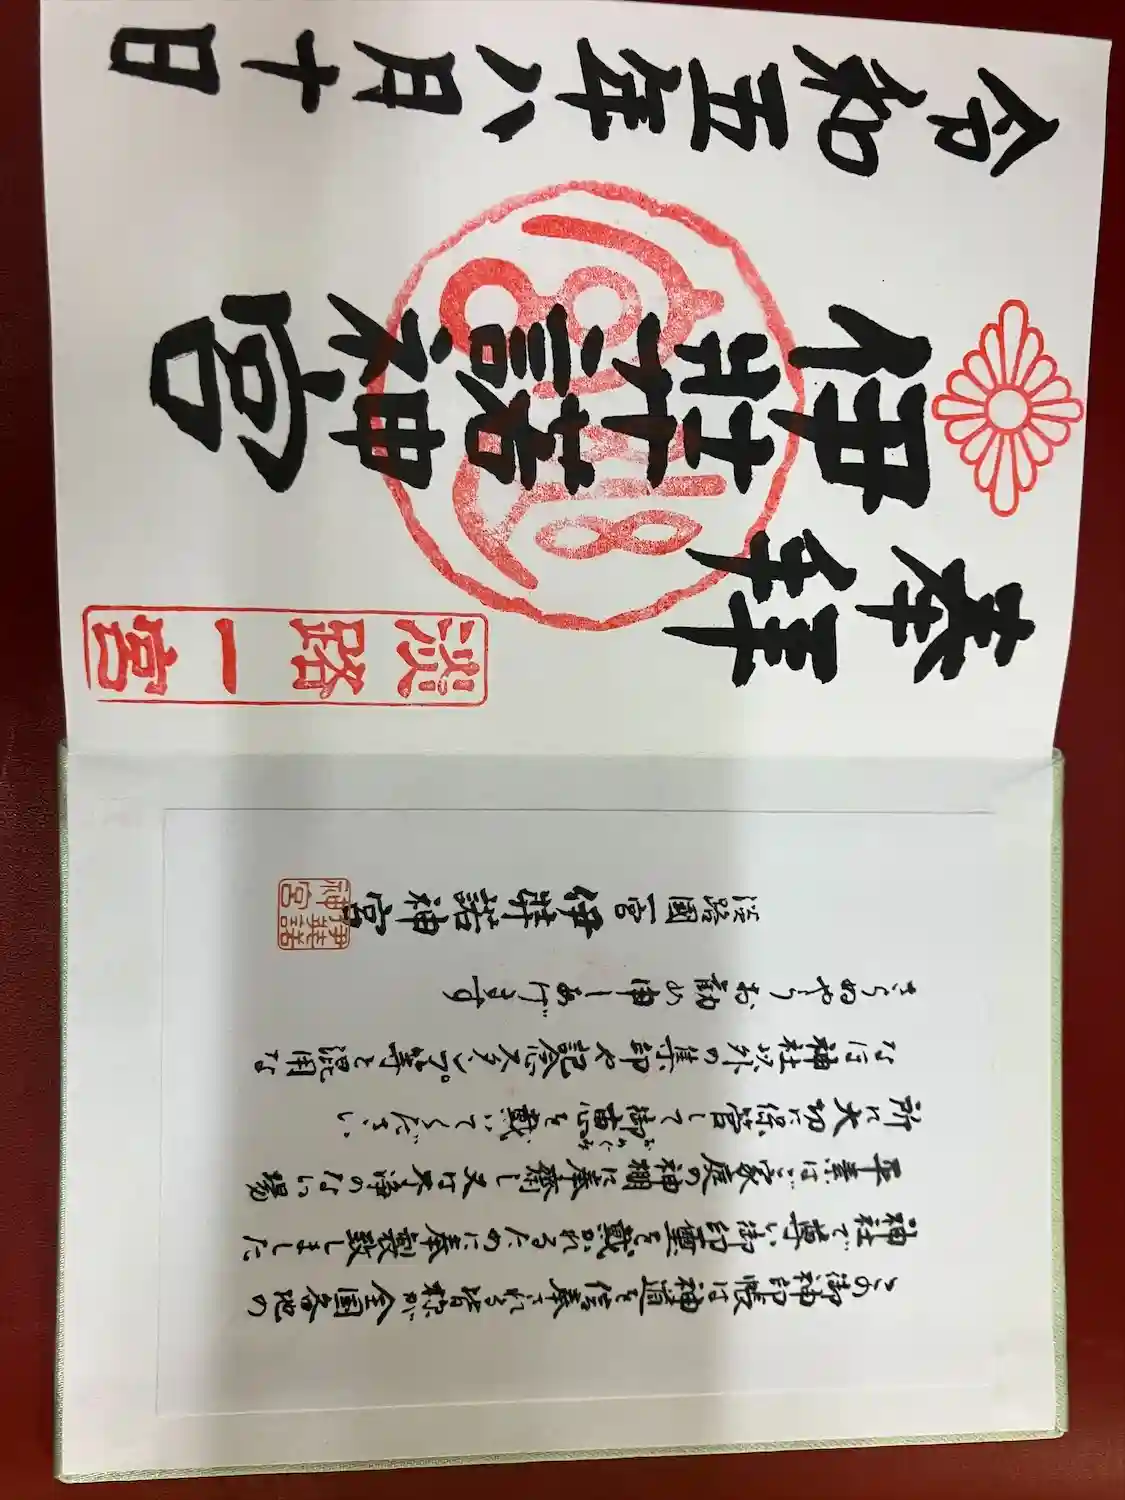 この御神印帳は神道を信奉される皆様が全国各地の
神社で尊い御印璽を戴かれるために奉製致しました
平素はご家庭の神棚に奉齋し又は不浄のない場
所に大切に保管して御恵を戴いてください
なほ神社以外の集印や記念スタンプ等と混用な
さらぬやうお勧め申しあげます
淡路國一宮 伊弉諾神宮
伊弉諾神宮
奉拜
淡路一宮
伊弉諾神宮
令和五年八月十日